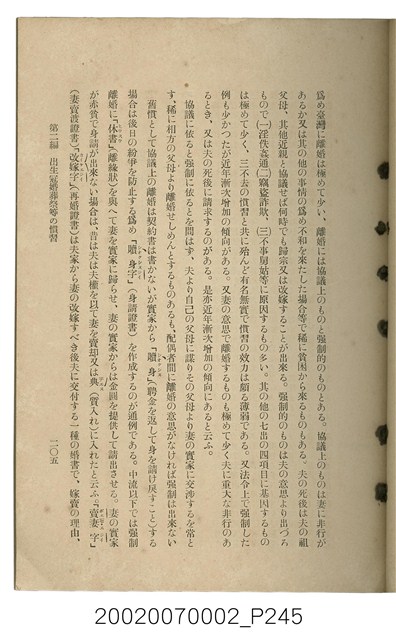 爲め臺灣に離婚は極めて少い、離婚には協議上のものと强制的のものとある。協議上のものは妻に非行が
あるか又は其の他の事情の爲め不和を來たした場合等で稀に貧困から來るものもある。夫の死後は夫の祖
父母、其他近親と協議せば何時でも歸宗又は改嫁することが出來る。强制的のものは夫の意思より出づろ
もので(一)淫佚姦通(二)竊盜詐欺、(三)不事舅姑等に原因するもの多い。其の他の七出の四項目に基因するもの
は極めて少く、三不去の慣習と共に殆んど有名無實で慣習の效力は頗る薄弱である。又法令上で强制した
例も少かつたが近年漸次增加の傾向がある。又妻の意思で離婚するものも極めて少く夫に重大な非行のあ
るとき、又は夫の死後に請求するのがある。是亦近年漸次增加の傾向にあると云ふ。
協議に依ると强制に依るとを問はず、夫より自己の父母に謀りその父母より妻の實家に交渉するを常と
す、稀に相方の父母より離婚せしめんとするものあるも、配偶者間に離婚の意思がなければ强制は出來ない
舊慣として協議上の離婚は契約書は書かないが實家から「贖身」(聘金を返して身を請け戻すこと)する
場合は後日の紛爭を防止する爲め「贖身字」(身請證書)を作成するのが通例である。中流以下では强制
離婚に「休書」(離緣狀)を與へて妻を實家に歸らせ、妻の實家からは金圓を提供して請出させる。妻の實家
が赤貧で身請が出來ない場合は、昔は夫は夫權を以て妻を賣却又は典(質入れ)に入れたと云ふ「賣妻字」
(妻賣渡證書)「改嫁字」(再婚證書)は夫家から妻の改嫁すべき後夫に交付する一種の婚書で、嫁賣の理由、
第二編 出生冠婚葬祭等の慣習
二〇五
20020070002_P245